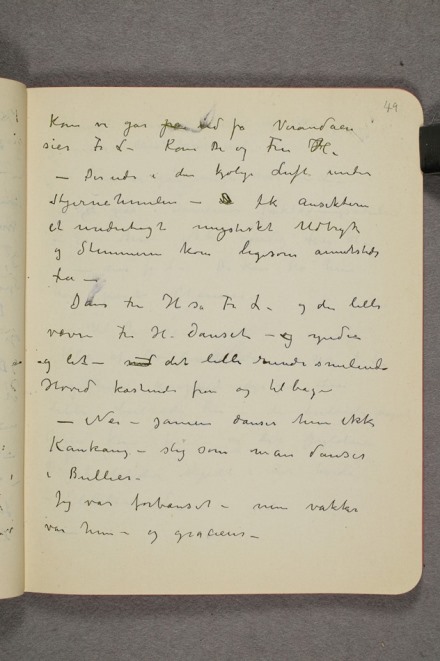 49
Kom vi gar ud på Verandaen
sier Fr L – Kom De og Fru H.
– Der ude i den kjølige Luft under
Stjernehimlen – fik Ansikterne
et underligt mystiskt Udtryk
og Stemmerne kom ligesom annetsteds
fra –
Dans Fru H sa Fr L. – og den lille
Fru H. Dansete – og
og let – det lille runde smilende
Hoved kastende frem og tilbage
– Nei – jamen danser hun ikke
Kankang – slig som man danser
i Bullier –
Jeg var forbauset – men vakker
var hun – og graciøs –